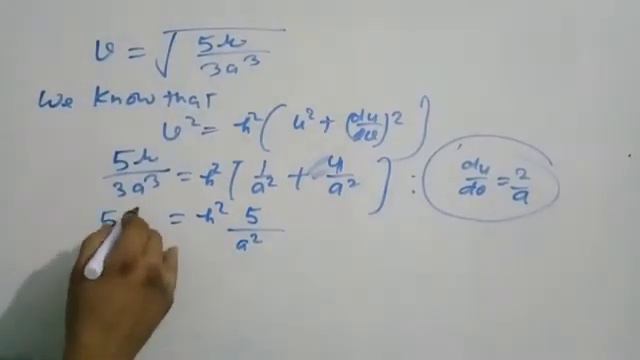 v = √(5μ/3a³)
We Know that
v² = h² ( u² + (du/dθ)² )
5μ/3a³ = h² [ 1/a² + 4/a² ] : du/dθ = 2/a
5 = h² 5/a²